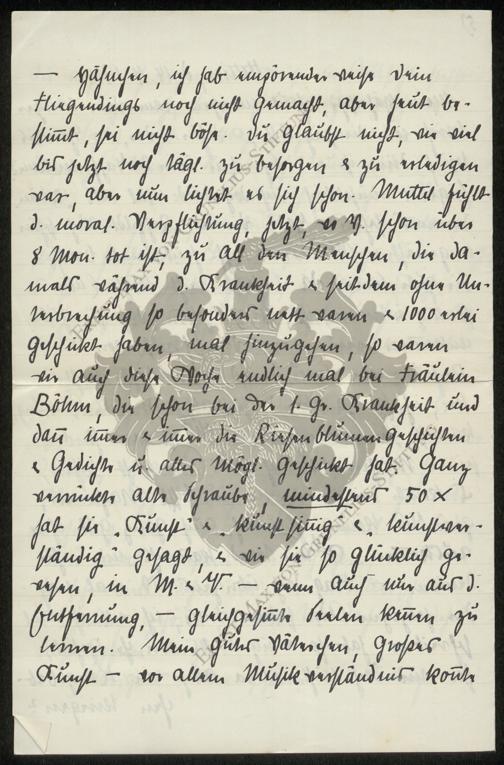 — Hähnchen, ich hab empörender weise Dein
Fliegendings noch nicht gemacht, aber heut be-
stimt, sei nicht böse. Du glaubst nicht, wie viel
bis jetzt noch tägl. zu besorgen & zu erledigen
war, aber nun lichtet es sich schon. Muttel fühlt
d. moral. Verpflichtung, jetzt, wo V. schon über
8 Mon. tot ist, zu all den Menschen, die da-
mals während d. Krankheit & seitdem ohne Un-
terbrechung so besonders nett waren & 1000 erlei
geschickt haben, mal hinzugehen, so waren
wir auch diese Woche endlich mal bei Fräulein
Böhm, die schon bei der 1. Gr. Krankheit und
dan̄ im̄er & im̄er die Riesenblumengeschichten
& Gedichte u. alles Mögl. geschickt hat. Ganz
verrückte alte Schraube, mindestens 50 x
hat sie „Kunst" & „kunstsinnig & „kunstver-
ständig" gesagt, & wie sie so glücklich ge-
wesen, in M. & V. — wenn auch nur aus d.
Entfernung, — gleichgesin̄te Seelen ken̄en zu
lernen. Mein gutes Väterchen, großes
Kunst — vor allem Musikverständnis kon̄te